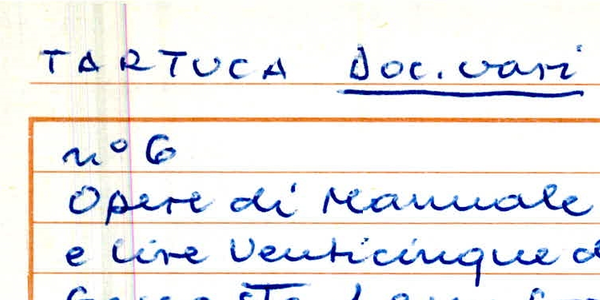 TARTUCA Doc. vari
n° 6
Opere di Manuale
e lire Venticinque d